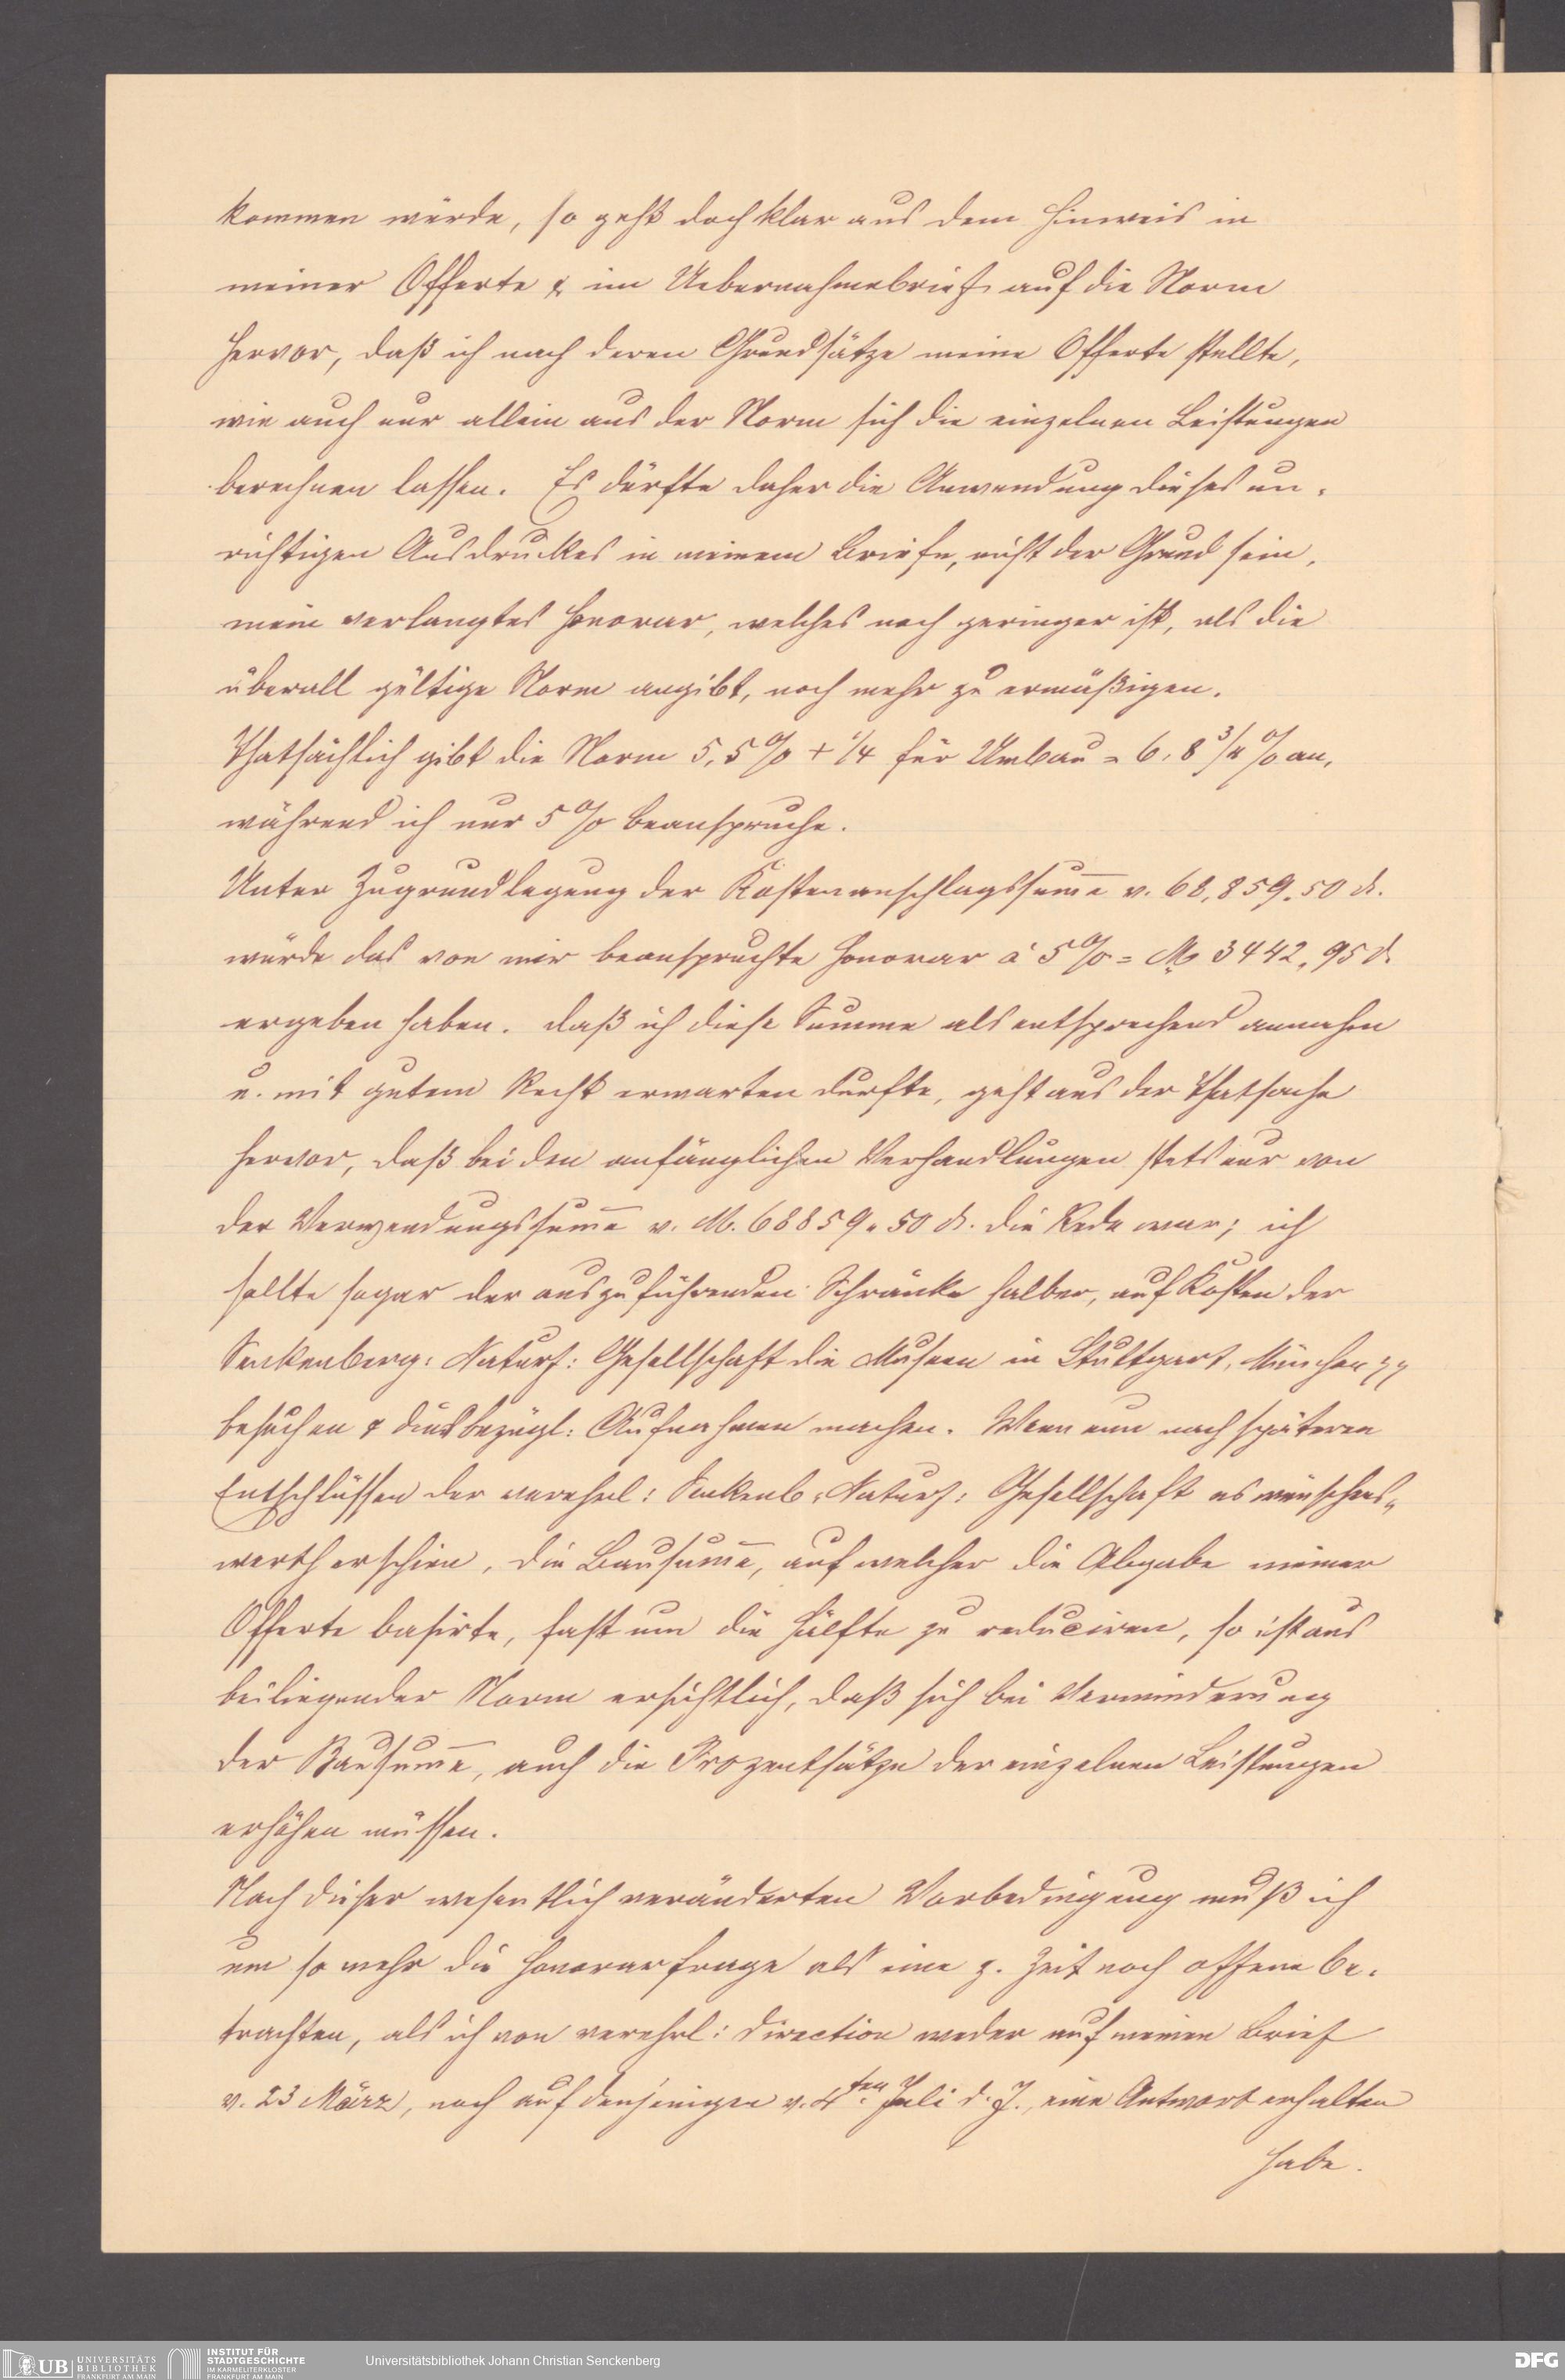 kommen würde, so geht doch klar aus dem Hinweis in
meiner Offerte & im Uebernahmebrief auf die Norm
hervor, daß ich nach deren Grundsätze meine Offerte stellte,
wie auch nur allein aus der Norm sich die einzelnen Leistungen
berechnen lassen. Es dürfte daher die Anwendung dieses un-
richtigen Ausdruckes in meinem Briefe, nicht der Grund sein,
mein verlangtes Honorar, welches noch geringer ist, als die
überall gültige Norm angibt, noch mehr zu ermäßigen.
Thatsächlich gibt die Norm 5,5% + 1/4 für Umbau = 6,8 3/4 % an,
während ich nur 5% beanspruche.
Unter Zugrundlegung der Kostenanschlagssum̄e v. 68,859.50 ₰.
würde das von mir beanspruchte Honorar à 5% = M 3442,95 ₰
ergeben haben. Daß ich diese Summe als entsprechend annahm
u. mit gutem Recht erwarten durfte, geht aus der Thatsache
hervor, daß bei den anfänglichen Verhandlungen stets nur von
der Verwendungssum̄e v. M. 68859.50 ₰. die Rede war; ich
sollte sogar der auszuführenden Schränke halber, auf Kosten der
Senkenberg: Naturf: Gesellschaft die Museen in Stuttgart, München
besuchen & diesbezügl: Aufnahmen machen. Wenn nun nach späteren
Entschlüssen der verehrl: Senkenb. Naturf: Gesellschaft es wünschens„
werth erschien, die Bausum̄e, auf welcher die Abgabe meiner
Offerte basirte, fast um die Hälfte zu reduciren, so ist aus
beiliegender Norm ersichtlich, daß sich bei Verminderung
der Bausum̄e, auch die Prozentsätze der einzelnen Leistungen
erhöhen müssen.
Nach dieser wesentlich veränderten Vorbedingung muß ich
um so mehr die Honorarfrage als eine z. Zeit noch offene be-
trachten, als ich von verehrl: Direction weder auf meinen Brief
v. 23 März, noch auf denjenigen v. 4ten Juli d. J., eine Antwort erhalten
habe.
UB UNIVERSITÄTS
BIBLIOTHEK
FRANKFURT AM MAIN
INSTITUT FÜR
STADTGESCHICHTE
IM KARMELITERKLOSTER
FRANKFURT AM MAIN
Universitätsbibliothek Johann Christian Senckenberg
DFG